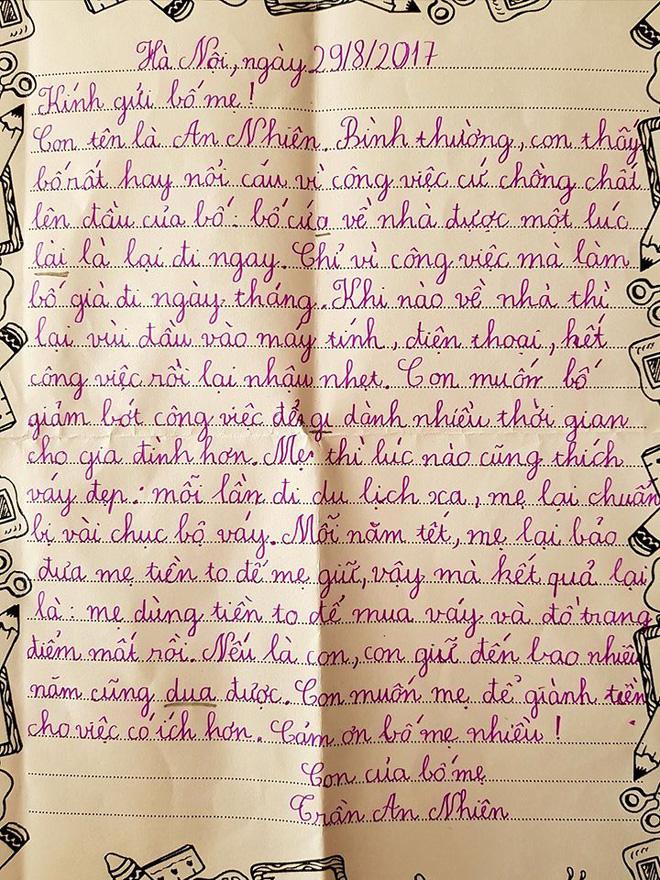 Hà Nội, ngày 29/8/2017
Kính gửi bố mẹ!
Con tên là An Nhiên. Bình thường, con thấy
bố rất hay nổi cáu vì công việc cứ chồng chất
lên đầu của bố: bố cửa về nhà được một lúc
lài là lại đi ngay. Chỉ vì công việc mà làm
bố già đi ngày tháng. Khi nào về nhà thì
lại vùi đầu vào máy tính, điện thoại, hết
công việc rồi lại nhậu nhẹt. Con muốn bố
giảm bớt công việc để gi dành nhiều thời gian
cho gia đình hơn. Mẹ thì lúc nào cũng thích
váy đẹp: mỗi lần đi du lịch xa, mẹ lại chuẩn
bị vài chục bộ váy. Mỗi năm tết, mẹ lại bảo
đưa mẹ tiền to để mẹ giữ, vậy mà kết quả lại
là: mẹ dùng tiền to để mua váy và đồ trang
điểm mất rồi. Nếu là con, con giữ đến bao nhiêu
năm cũng dua được. Con muốn mẹ để giành tiền
cho việc có ích hơn. Cám ơn bố mẹ nhiều!
Con của bố mẹ
Trần An Nhiên